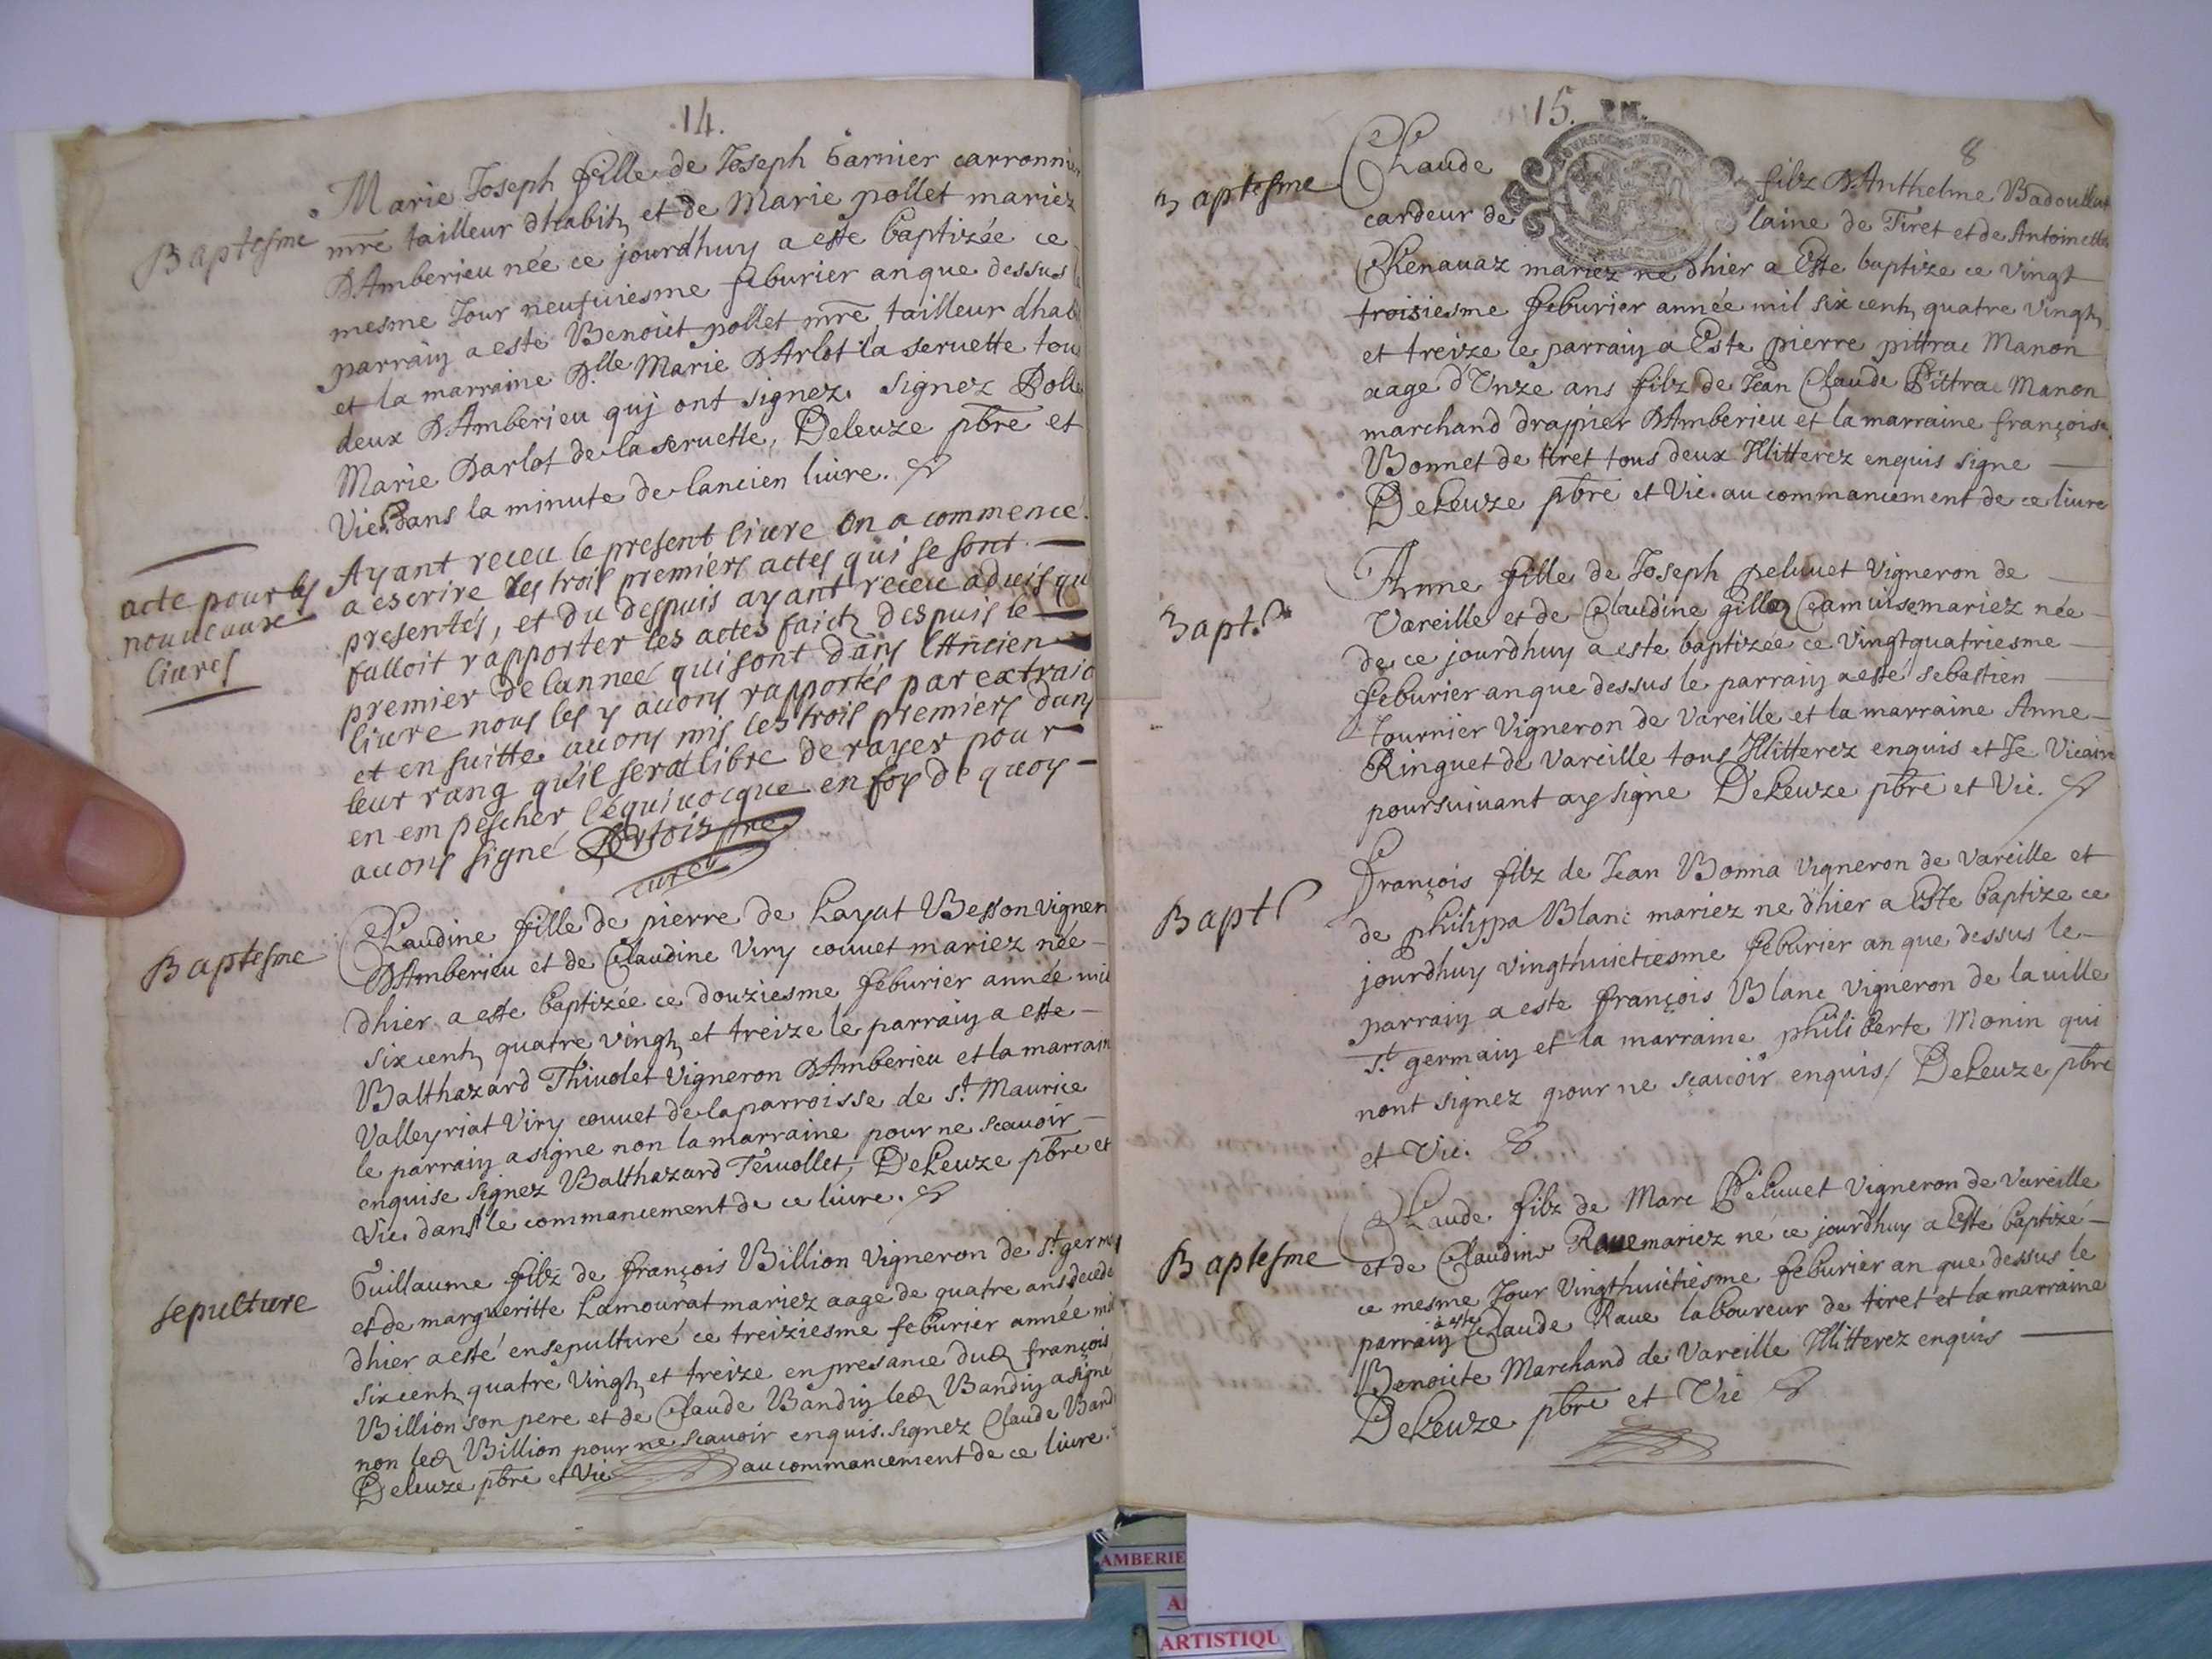 14.
Baptesme
Marie Joseph fille de Joseph Garnier carronnier
mre tailleur dhabitz et de Marie pollet mariez
D'Amberieu née ce jourdhuy a este baptizée ce
mesme Jour neufuiesme feburier an que dessus le
parrain a este Benoict pollet mre tailleur dhab
et la marraine Dlle Marie D'Arlot la seruette tou
deux D'Amberieu quj ont signez. Signez Polle
Marie Darlot de la seruette, Deleuze pbre et
Vic. dans la minute de lancien liure.
acte pour les
nouueaux
liures
Ayant receu le present liure on a commencé
a escrire les trois premiers actes qui se sont
presentés, et du despuis ayant receu aduis qu
falloit rapporter les actes faictz despuis le
premier de lannee qui sont dans l'Ancien
liure nous les y auons rapportés par extraic
et en suitte auons mis les trois premiers dans
leur rang qu'il sera libre de rayer pour
en empescher lequiuocque en foy de quoy
auons signé
curé
Baptesme
Claudine fille de pierre de Layat Besson vigner
D'Amberieu et de Claudine Viry couuet mariez née
dhier a este baptizée ce douziesme feburier année mil
six centz quatre vingtz et treize le parrain a este
Balthazard Thiuolet vigneron D'Amberieu et la marrain
Valleyriat Viry couuet de la parroisse de st. Maurice
le parrain a signe non la marraine pour ne scauoir
enquise signez Balthazard Teuollet, DeLeuze pbre et
Vic. dans le commancement de ce liure.
sepulture
Guillaume filz de françois Billion vigneron de st. germ
et de margueritte Lamourat mariez aagé de quatre ans decedé
dhier a esté ensepulturé ce treiziesme feburier année mil
six centz quatre vingtz et treize en presance dud françois
Billion son pere et de Claude Bandin led Bandin a signe
non led Billion pour ne scauoir enquis. signez Claude Band
Deleuze pbre et Vic au commancement de ce liure.
15.
8
Baptesme
Claude filz D'Anthelme Badoullat
cardeur de laine de Tiret et de Antoinette
Chenauaz mariez né dhier a Este baptize ce vingt
troisiesme feburier année mil six centz quatre vingtz
et treize le parrain a Este pierre pittrac Manon
aage d'Unze ans filz de Jean Claude Pittrac Manon
marchand drappier D'Amberieu et la marraine françoise
Bonnet de tiret tous deux Illitterez enquis signe
DeLeuze pbre et Vic. au commancement de ce liure
Bapt.
Anne fille de Joseph peluuet vigneron de
Vareille et de Claudine gillaz Camuise mariez née
de ce jourdhuy a este baptizée ce vingtquatriesme
feburier an que dessus le parrain a este sebastien
tournier vigneron de Vareille et la marraine Anne
Ringuet de Vareille tous Illitterez enquis et Je Vicaire
poursuiuant ay signe DeLeuze pbre et Vic.
Bapt
françois filz de Jean Bonna vigneron de vareille et
de philippa Blanc mariez ne dhier a Este baptize ce
jourdhuy vingthuictiesme feburier an que dessus le
parrain a este françois Blanc vigneron de la uille
st. germain et la marraine philiberte Monin qui
nont signez pour ne sçauoir enquis / DeLeuze pbre
et Vic.
Baptesme
Claude filz de Marc Peluuet vigneron de Vareille
et de Claudine Raue mariez né ce jourdhuy a Esté baptizé
ce mesme Jour vingthuictiesme feburier an que dessus le
parrain a este Claude Raue laboureur de tiret et la marraine
Benoicte Marchand de Vareille Illitterez enquis
DeLeuze pbre et Vic
AMBERIE
A
ARTISTIQU